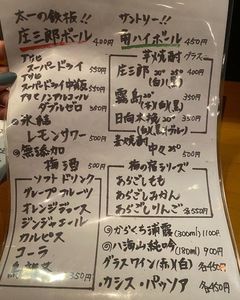 太一の鉄板!!
庄三郎ボール 400円
アサヒ
スーパードライ 550円
アサヒ
スーパードライ中瓶 550円
アサヒノンアルコール
ダブルゼロ 350円
◎氷結
レモンサワー 500円
◎無添加
梅酒 500円
ソフトドリンク
グレープフルーツ
オレンジジュース
ジンジャエール
カルピス
コーラ
350円
サントリー!!
角ハイボール 450円
芋焼酎 グラス
庄三郎 350円
(白)(黒)
霧島
日向木挽
麦焼酎
中々
梅の宿シリーズ
あらごしもも
あらごしみかん
あらごしりんご 各550円
◎からくち浦霞 (300ml) 1100円
◎八海山純吟 (180ml) 900円
グラスワイン(赤)(白) 各450円
カシス・パッソア 各450円